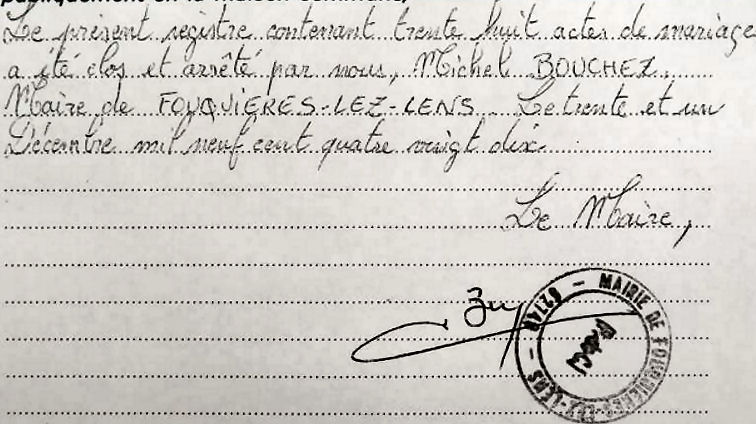 publiquement en la maison commune,
Le présent registre contenant trente huit actes de mariage
a été clos et arrêté par nous, Michel BOUCHEZ,
Maire de FOUQUIERES-LEZ-LENS. Le trente et un
Décembre mil neuf cent quatre vingt dix.
Le Maire,
MAIRIE DE FOUQUIERES-LEZ-LENS - 62740 -